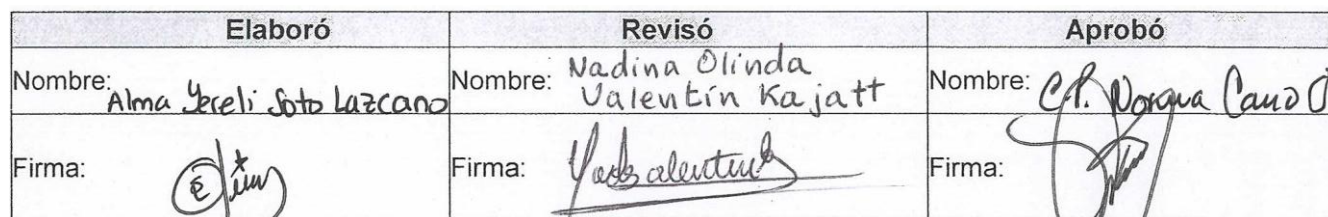 Elaboró Revisó Aprobó
Nombre: Alma Yereli Soto Lazcano Nombre: Nadina Olinda
Valentín Kajatt Nombre: C.P. Norma Cano
Firma: Firma: Firma: